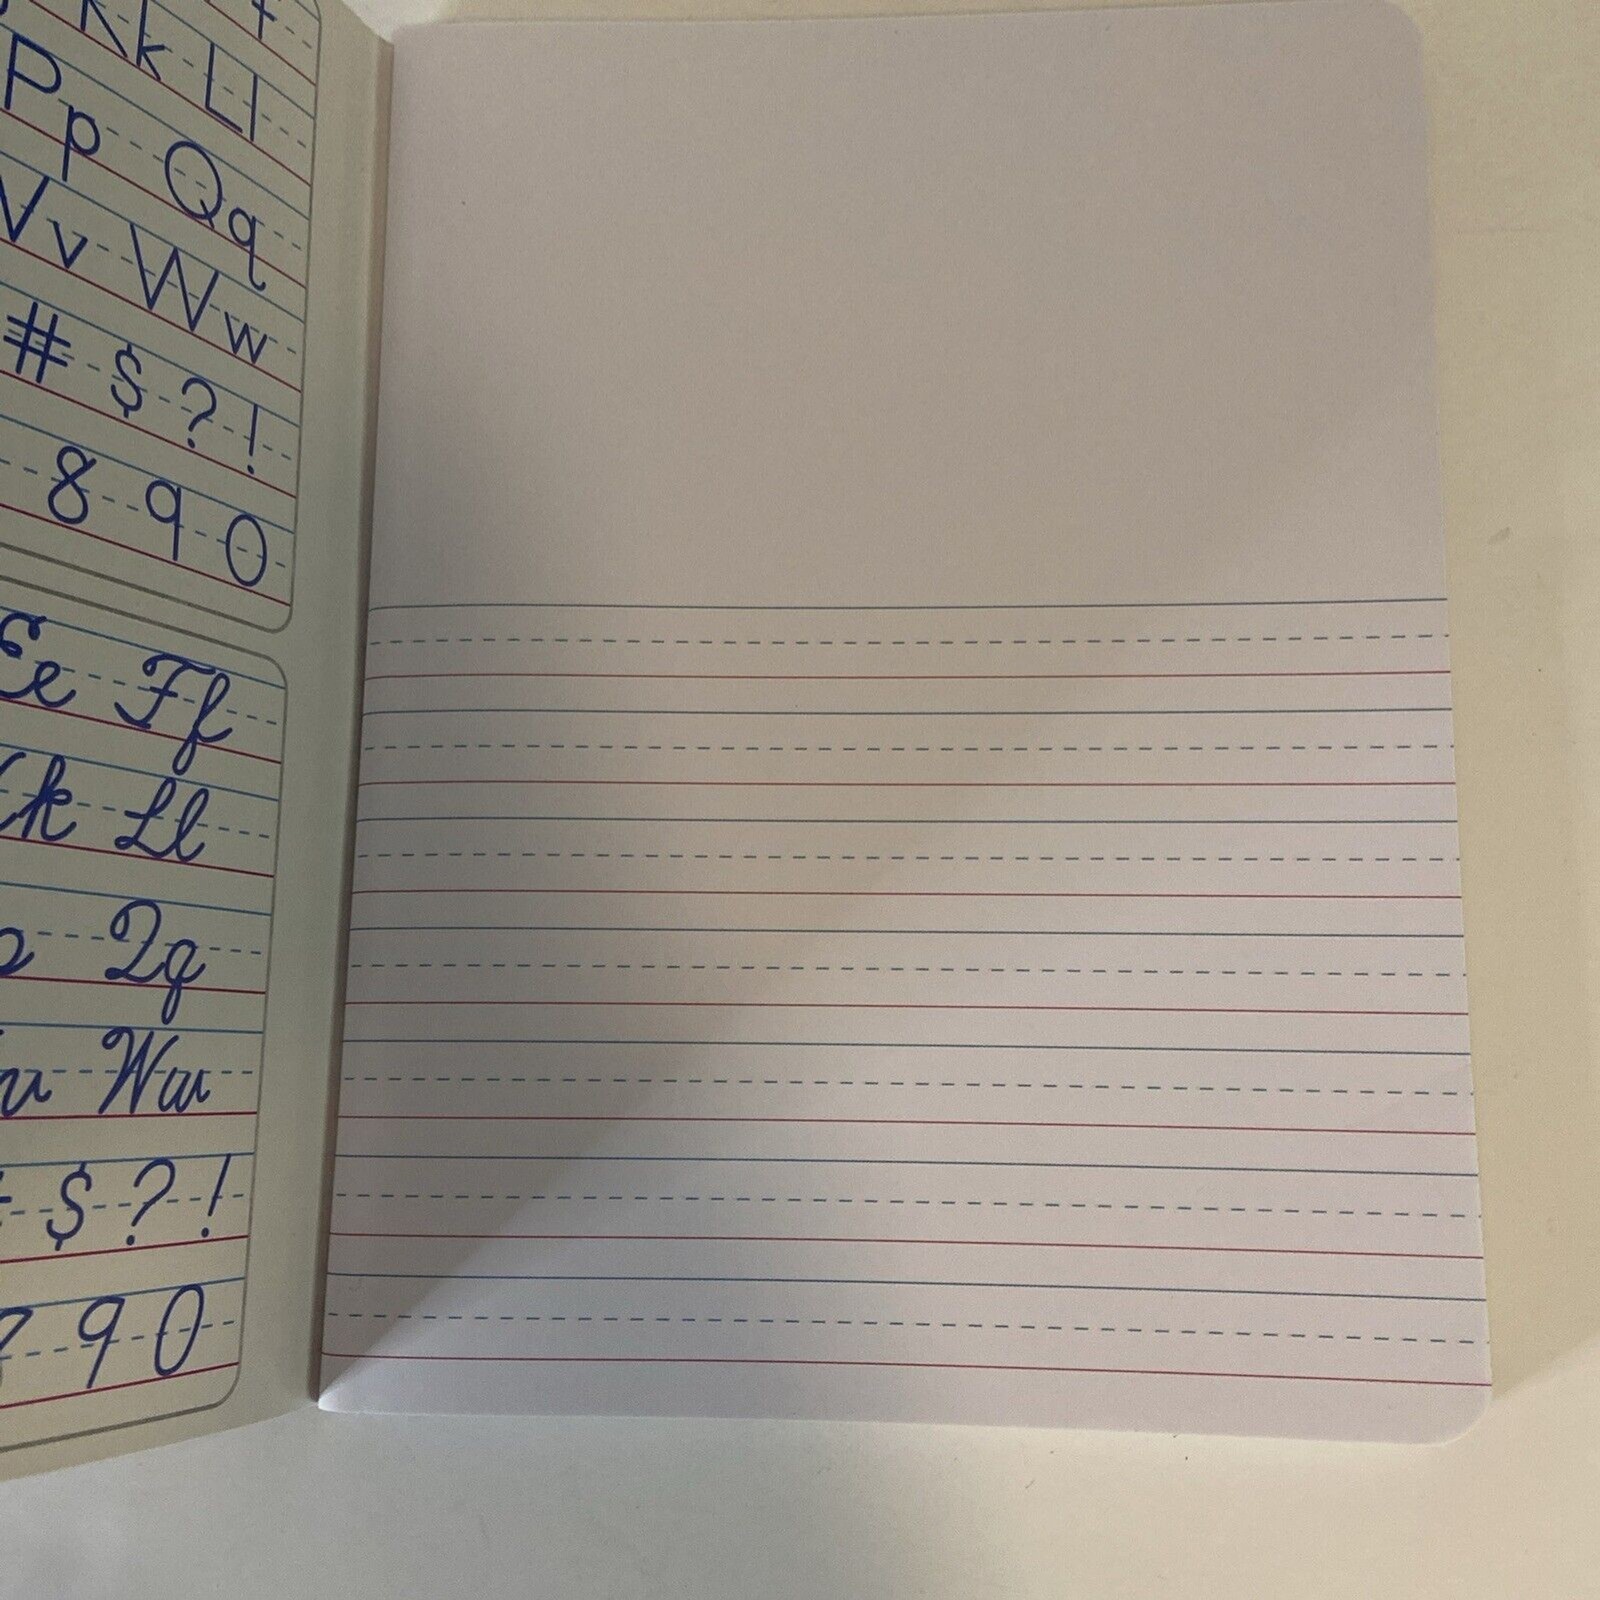 Kk Ll
Pp Qq
Vv Ww
# $ ? !
8 9 0
Ee Ff
Kk Ll
Qq
Ww
$ ? !
9 0